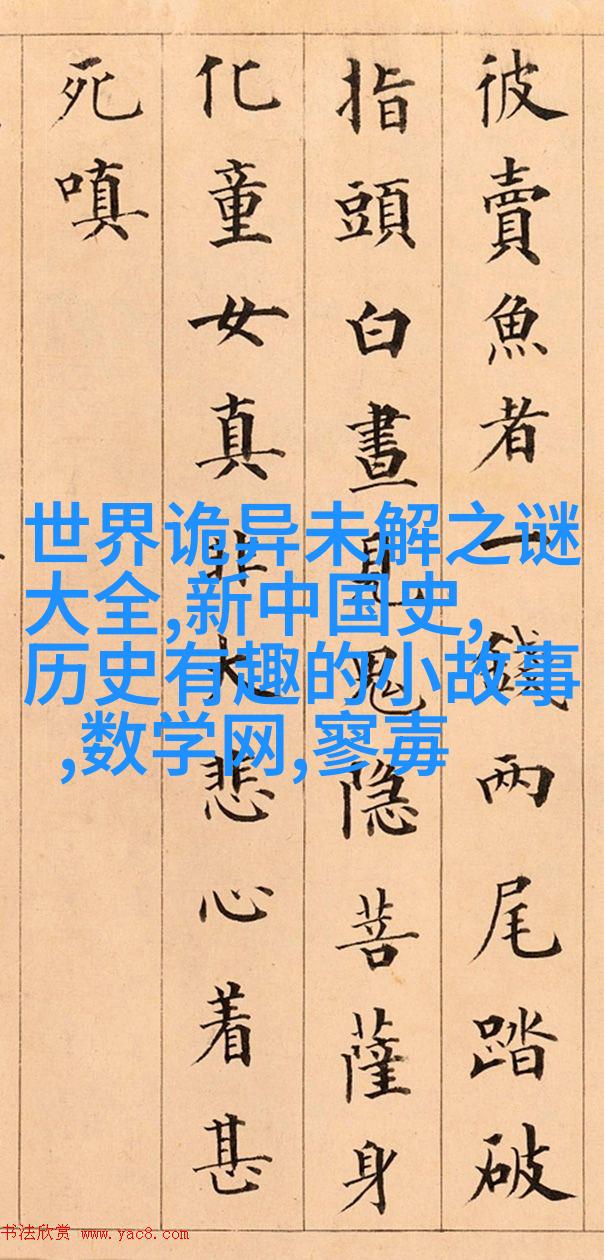 彼賣魚者一錢兩尾踏破
指頭白晝見鬼隐菩薩身
化童女真非大悲心着甚
死嗔
世界诡异未解之谜
大全,新中国史,
历史有趣的小故事
,数学网,寥毐
书法欣赏 www.yac8.com